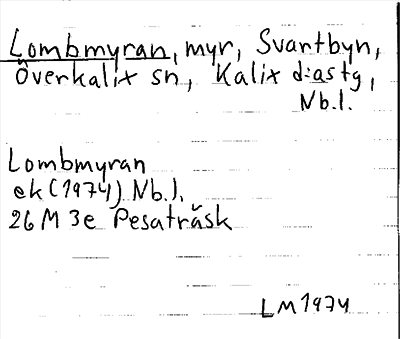 Lombmyran, myr, Svartbyn,
Överkalix sn, Kalix d:astg,
Nb.l.
Lombmyran
ek (1974) Nb.l.
26 M 3e Pesaträsk
LM 1974